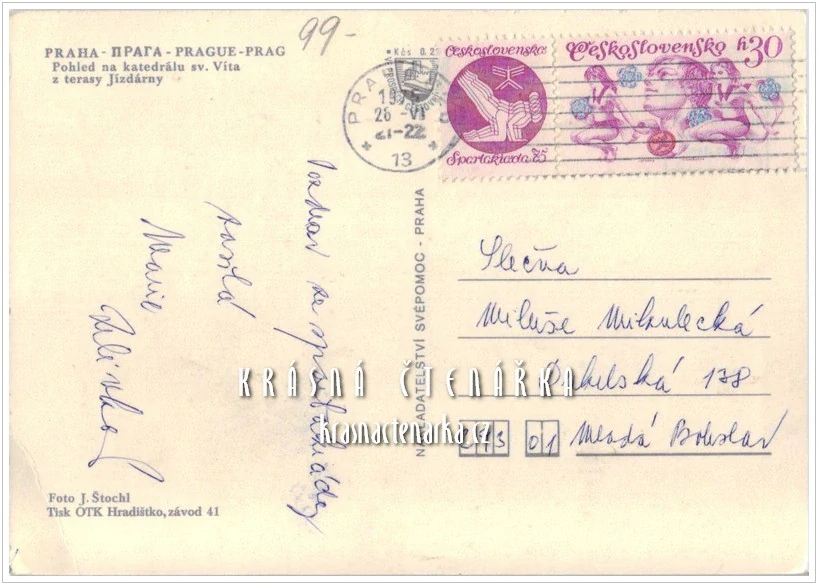 99-
PRAHA - ПРАГА - PRAGUE - PRAG
Pohled na katedrálu sv. Víta
z terasy Jízdárny
Kčs 0,
PRA
26 -VI
21-22
13
Československo
Spartakiada 75
Československo h30
Pozdrav ze spartakiády
zasílá
Marie
NAKLADATELSTVÍ SVÉPOMOC - PRAHA
Slečna
Miluše Mikulecká
178
293 01 Mladá Boleslav
KRÁSNÁ ČTENÁŘKA
krasnactenarka.cz
Foto J. Štochl
Tisk OTK Hradištko, závod 41